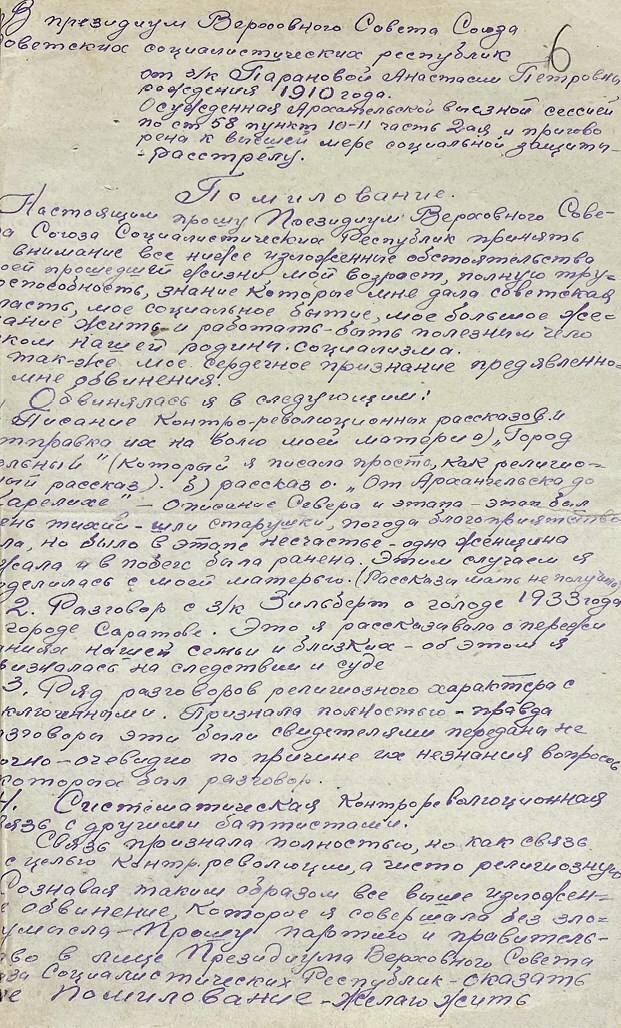 В президиум Верховного Совета Союза
Советских социалистических республик
6
от з/к Парановой Анастасии Петровны
рождения 1910 года.
Осужденная Архангельской выездной сессией
по ст 58 пункт 10-11 часть 2ая и пригово
рена к высшей мере социальной защиты-
-расстрелу.
Помилование.
Настоящим прошу Президиум Верховного Сове-
а Союза Социалистических Республик принять
внимание все ниже изложенние обстоятельства
оей прошедшей жизни, мой возраст, полную тру-
оспособность, знание которые мне дала советская
ласть, мое социальное бытие, мое большое же-
ание жить и работать-быть полезним чело
ком нашей родини.социализма.
так-же мое сердечное признание предявленно-
мне обвинения.
Обвинялась я в следующим:
Писание контро-революционных рассказов.и
тправка их на волю моей матери а) „Город
ельный" (который я писала просто, как религио=
ный рассказ). б) рассказ о. „От Архангельска до
Карелихе" – описание Севера и этапа-этап был
ень тихий-шли старушки, погода благоприятство
ла, но было в этапе несчастье-одна женщина
жала и в побеге была ранена. Этим случаем я
оделилась с моей матерью. (Рассказы мать не получила)
2. Разговор с з/к Зильберт о голоде 1933 года
городе Саратове. Это я рассказывала о пережи
ниях нашей семьи и близких - об этом я
ризналась на следствии и суде
3. Ряд разговоров религиозного характера с
ключенными. Признала полностью - правда
азговоры эти были свидетелями переданы не
очно-очевидно по причине их незнания вопросов
которых был разговор.
4. Систематическая контрореволюционная
вязь с другими баптистами.
Связь признала полностью, но как связь
с целью контр.революции, а чисто религиозную
Сознавая таким образом все выше изложен=
е обвинение, которое я совершала без зло=
умысла-Прошу партию и правитель-
тво в лице Президиума Верховного Совета
юза Социалистических Республик-оказать
не Помилование-желаю жить